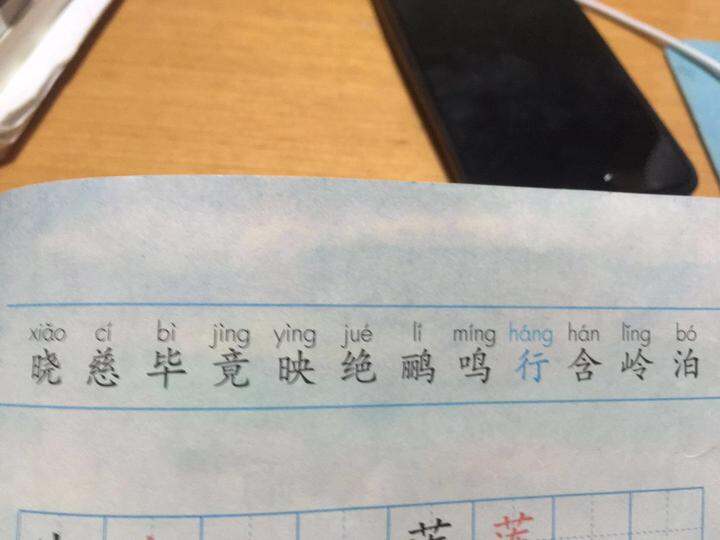 xiǎo cí bì jìng yìng jué lí míng háng hán lǐng bó
晓 慈 毕 竟 映 绝 鹂 鸣 行 含 岭 泊